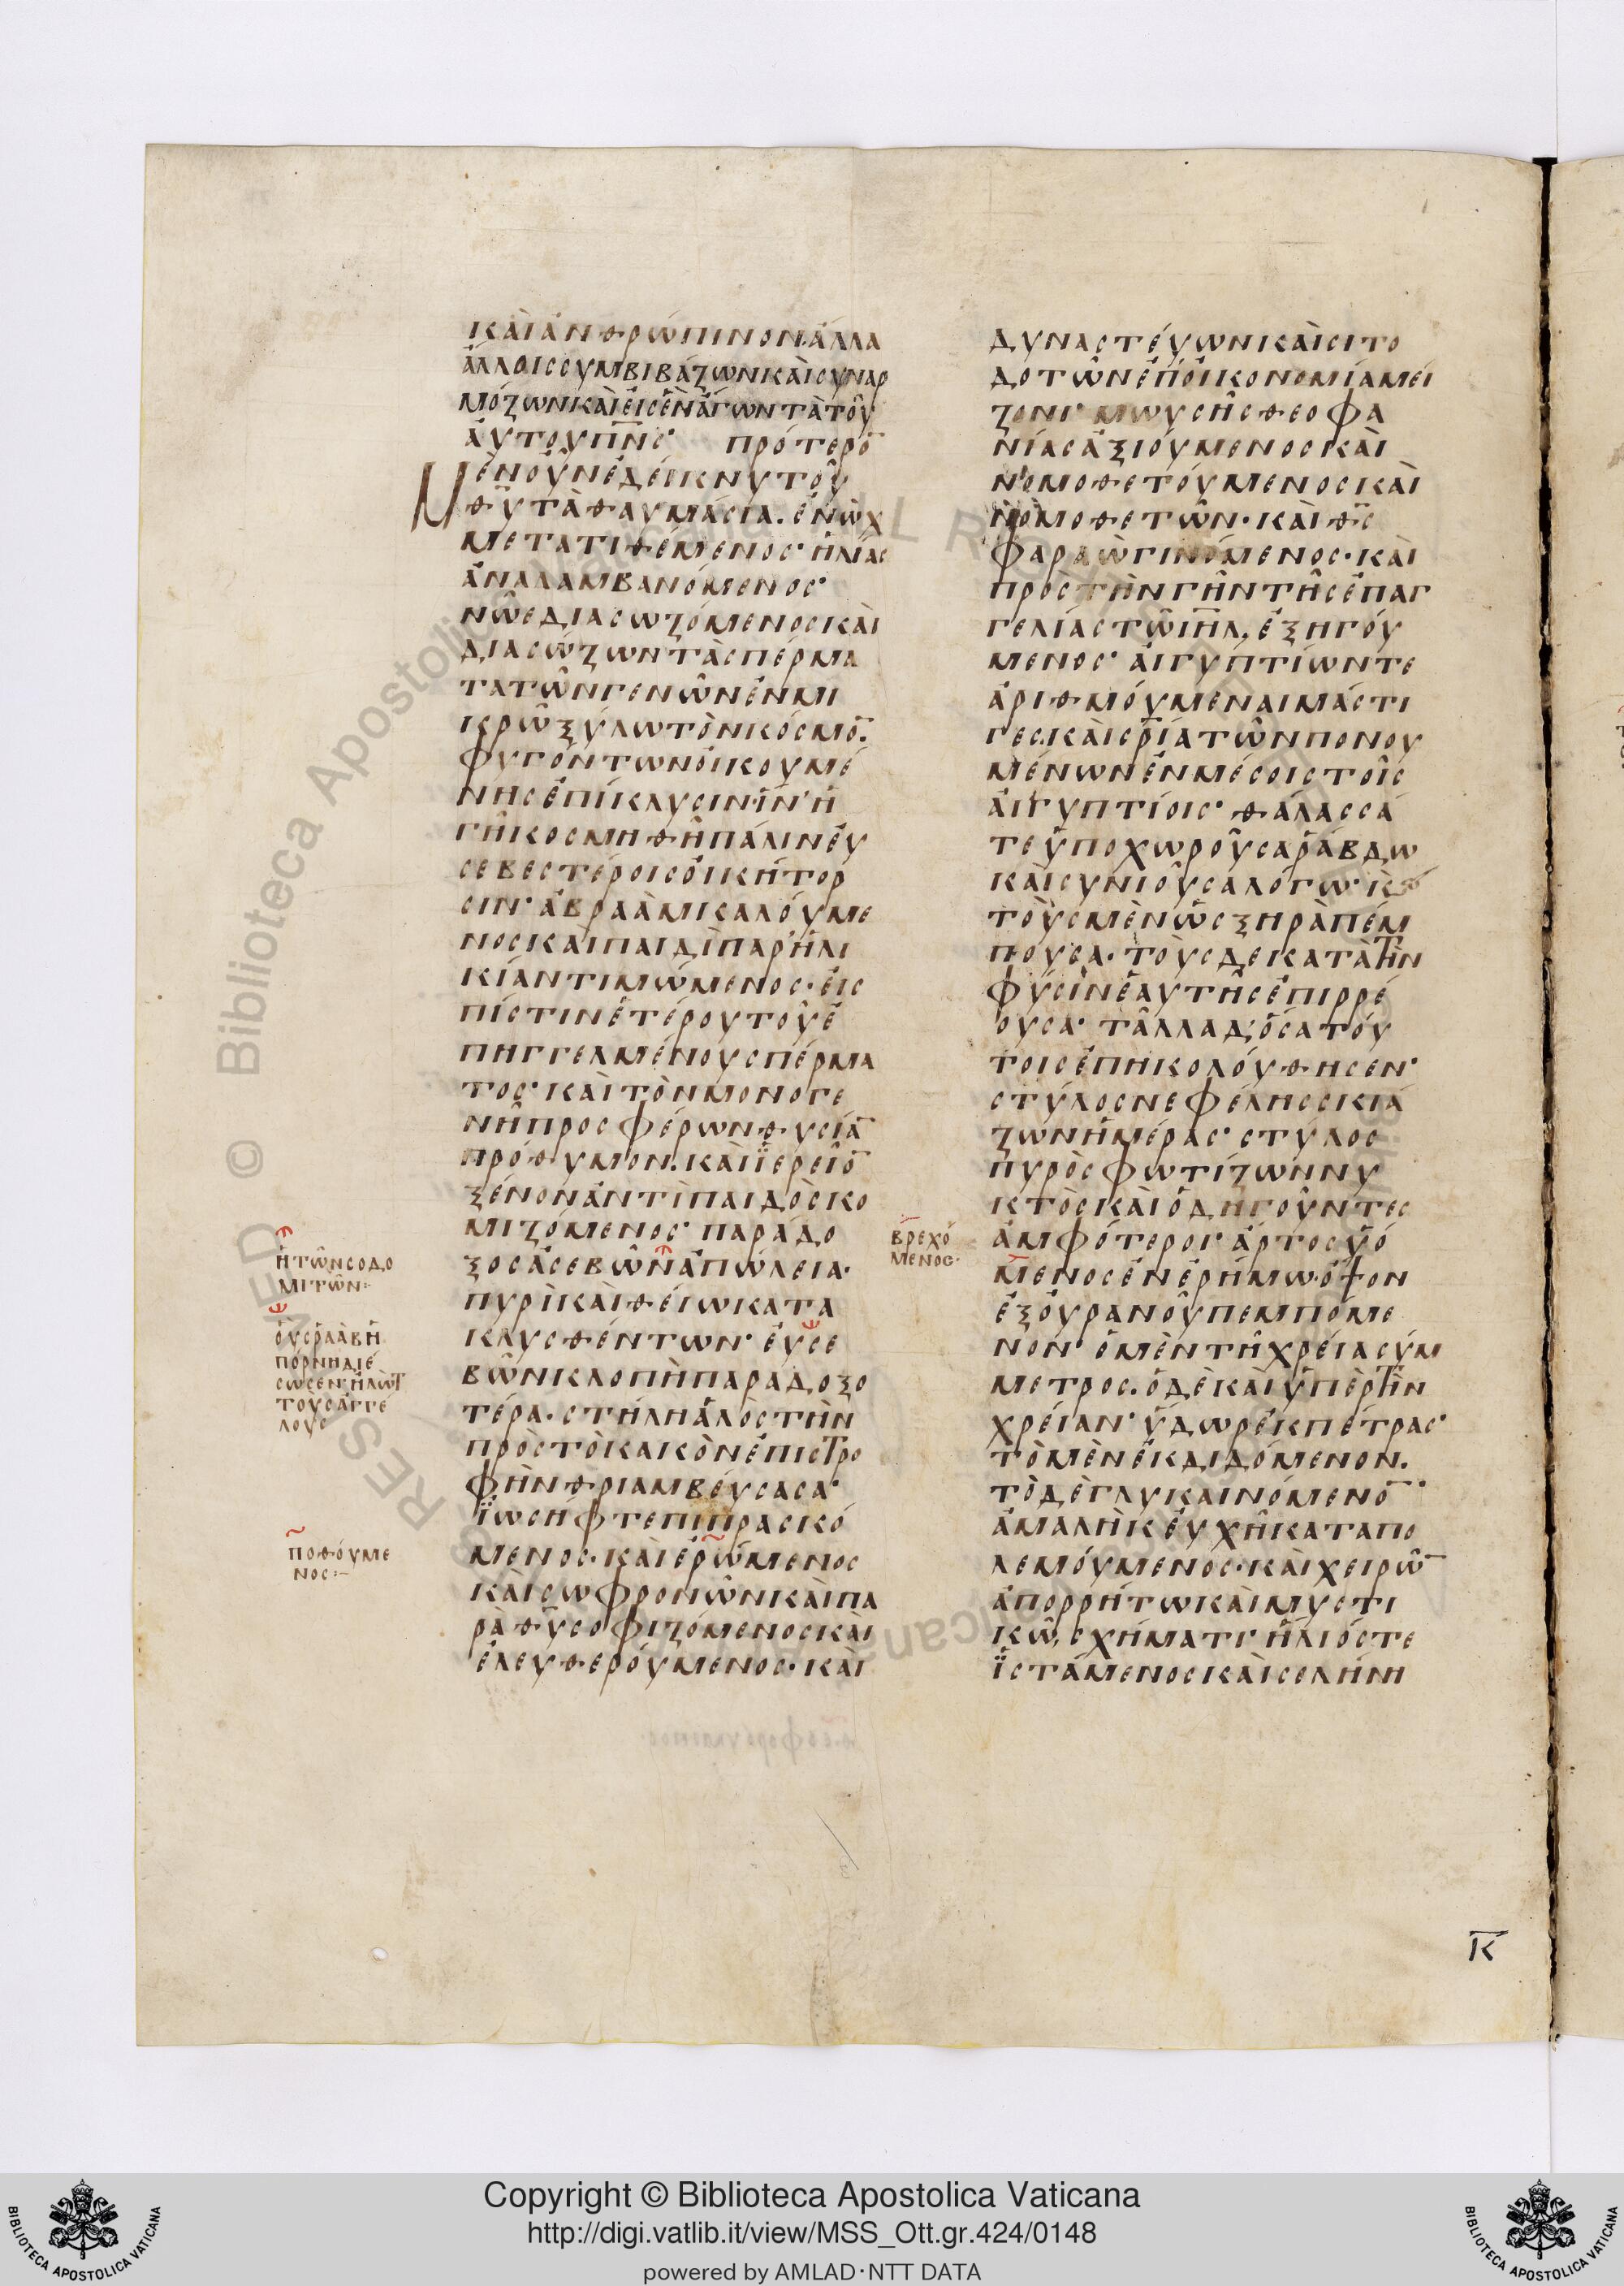 ΚΑῚἈΝΘΡΏΠΙΝΟΝ·ἈΛΛΑ
ἌΛΛΟΙΣΣΥΜΒΙΒΆΖΩΝΚΑῚΣΥΝΑΡ
ΜΌΖΩΝΚΑῚΕἸΣἛΝἌΓΩΝΤᾺΤΟΥ͂
ἈΥΤΟΥΠΝ̅Σ· ΠΡΌΤΕΡΟ̅
ΜῈΝΟΥ͂ΝἘΔΕΊΚΝΥΤΟΥ͂
ΘΥ̅ΤᾺΘΑΥΜΆΣΙΑ. ἘΝῺΧ
ΜΕΤΑΤΙΘΈΜΕΝΟΣ· ἩΛΊΑΣ
ἈΝΑΛΑΜΒΑΝΌΜΕΝΟΣ·
ΝΩ͂ΕΔΙΑΣΩΖΌΜΕΝΟΣΚΑῚ
ΔΙΑΣΏΖΩΝΤᾺΣΠΈΡΜΑ
ΤΑΤΩ͂ΝΓΕΝΩ͂ΝἘΝΜΙ
ΚΡΩ͂ΞΎΛΩΤῸΝΚΌΣΜΟ̅.
ΦΥΓΌΝΤΩΝΟἸΚΟΥΜΈ
ΝΗΣἘΠΊΚΛΥΣΙΝ·ἽΝ'Ἡ
ΓΗ͂ΚΟΣΜΗΘΗ͂ΠΆΛΙΝἘΥ
ΣΕΒΕΣΤΈΡΟΙΣΟἸΚΉΤΟΡ
ΣΙΝ· ἈΒΡΑᾺΜΚΑΛΌΥΜΕ
ΝΟΣΚΑῚΠΑΙΔῚΠΑΡ'ἩΛΙ
ΚΊΑΝΤΙΜΏΜΕΝΟΣ· ἘΙΣ
ΠΊΣΤΙΝἙΤΈΡΟΥΤΟΥ͂Ἐ
ΠΗΓΓΕΛΜΈΝΟΥΣΠΈΡΜΑ
ΤΟΣ· ΚΑῚΤῸΝΜΟΝΟΓΕ
ΝΗ͂ΠΡΟΣΦΈΡΩΝΘΥΣΊΑ̅
ΠΡΌΘΥΜΟΝ. ΚΑῚἹΕΡΕΙ͂Ο̅
ΞΈΝΟΝἈΝΤῚΠΑΙΔῸΣΚΟ
ΜΙΖΌΜΕΝΟΣ· ΠΑΡΆΔΟ
ΞΟΣἈΣΕΒΩ͂ΝἈΠΏΛΕΙΑ·
ΠΥΡῚΚΑῚΘΕΊΩΚΑΤΑ
ΚΛΥΣΘΈΝΤΩΝ· ἘΥΣΕ
ΒΩ͂ΝΚΛΟΠῊΠΑΡΑΔΟΞΟ
ΤΈΡΑ· ΣΤΉΛΗἉΛῸΣΤῊΝ
ΠΡῸΣΤῸΚΑΚῸΝἘΠΙΣΤΡΟ
ΦῊΝΘΡΙΑΜΒΕΎΣΑΣΑ·
ἸΩΣΉΦΤΕΠΙΠΡΑΣΚΌ
ΜΕΝΟΣ· ΚΑῚἘΡΏΜΕΝΟΣ
ΚΑῚΣΩΦΡΟΝΩ͂ΝΚΑῚΠΑ
ΡᾺΘΥ̅ΣΟΦΙΖΌΜΕΝΟΣΚΑῚ
ἘΛΕΥΘΕΡΌΥΜΕΝΟΣ· ΚΑῚ
ἩΤΩ͂ΝΣΟΔΟ
ΜΙΤΩ͂Ν:
ὉΥΣΡΑᾺΒἩ
ΠΌΡΝΗΔΙΈ
ΣΩΣΕΝ·ἬΛῺΤ
ΤΟΥΣἈΓΓΈ
ΛΟΥΣ
ΠΟΘΌΥΜΕ
ΝΟΣ:
ΔΥΝΑΣΤΈΥΩΝΚΑῚΣΙΤΟ
ΔΟΤΩ͂ΝἘΠ'ΟἸΚΟΝΟΜΊΑΜΕΊ
ΖΟΝΙ· ΜΩΥΣΗ͂ΣΘΕΟΦΑ
ΝΊΑΣἈΞΙΌΥΜΕΝΟΣΚΑῚ
ΝΟΜΟΘΕΤΌΥΜΕΝΟΣΚΑῚ
ΝΟΜΟΘΕΤΩ͂Ν· ΚΑῚΘΣ̅
ΦΑΡΑῺΓΙΝΌΜΕΝΟΣ· ΚΑῚ
ΠΡῸΣΤῊΝΓΗ͂ΝΤΗ͂ΣἘΠΑΓ
ΓΕΛΊΑΣΤΩ͂ΙΗ̅Λ, ἘΞΗΓΌΥ
ΜΕΝΟΣ· ἈΙΓΥΠΤΊΩΝΤΕ
ἈΡΙΘΜΌΥΜΕΝΑΙΜΆΣΤΙ
ΓΕΣ. ΚΑῚΣΡ̅ΊΑΤΩ͂ΝΠΟΝΟΥ
ΜΈΝΩΝἘΝΜΈΣΟΙΣΤΟΙ͂Σ
ἈΙΓΥΠΤΊΟΙΣ· ΘΆΛΑΣΣΆ
ΤΕὙΠΟΧΩΡΟΥ͂ΣΑΡΆΒΔΩ
ΚΑῚΣΥΝΙΟΥ͂ΣΑΛΌΓΩ· Κ̀
ΤΟῪΣΜῈΝὩΣΞΗΡᾺΠΈΜ
ΠΟΥΣΑ· ΤΟῪΣΔΕΚΑΤᾺΤῊΝ
ΦΎΣΙΝἙΑΥΤΗ͂ΣἘΠΙΡΡΈ
ΟΥΣΑ· ΤΑ͂ΛΛΑΔ'ὍΣΑΤΟΎ
ΤΟΙΣἘΠΗΚΟΛΟΎΘΗΣΕΝ·
ΣΤΎΛΟΣΝΕΦΈΛΗΣΣΚΙΆ
ΖΩΝἩΜΈΡΑΣ· ΣΤΎΛΟΣ
ΠΥΡῸΣΦΩΤΊΖΩΝΝΥ
ΚΤῸΣΚΑῚὉΔΗΓΟΥ͂ΝΤΕΣ
ἈΜΦΌΤΕΡΟΙ· ἌΡΤΟΣὙΌ
ΜΕΝΟΣἘΝἘΡΉΜΩ·ὌΨΟΝ
ἘΞΟὐΡΑΝΟΥ͂ΠΕΜΠΌΜΕ
ΝΟΝ· ὉΜῈΝΤΗ͂ΧΡΕΊΑΣΎΜ
ΜΕΤΡΟΣ. ὉΔῈΚΑῚὙΠῈΡΤῊΝ
ΧΡΕΊΑΝ· ὝΔΩΡἘΚΠΈΤΡΑΣ·
ΤῸΜῈΝἘΚΔΙΔΌΜΕΝΟΝ.
ΤῸΔῈΓΛΥΚΑΙΝΌΜΕΝΟ̅·
ἈΜΑΛῊΚἘΥΧΗ͂ΚΑΤΑΠΟ
ΛΕΜΌΥΜΕΝΟΣ· ΚΑῚΧΕΙΡΩ̅͂
ἈΠΟΡΡΉΤΩΚΑῚΜΥΣΤΙ
ΚΩ͂, ΣΧΉΜΑΤΙ· ἭΛΙΌΣΤΕ
ἹΣΤΆΜΕΝΟΣΚΑῚΣΕΛΉΝΗ
ΒΡΕΧΌ
ΜΕΝΟΣ·
Κ̅
Copyright © Biblioteca Apostolica Vaticana
http://digi.vatlib.it/view/MSS_Ott.gr.424/0148
powered by AMLAD·NTT DATA
BIBLIOTECA APOSTOLICA VATICANA
BIBLIOTECA APOSTOLICA VATICANA